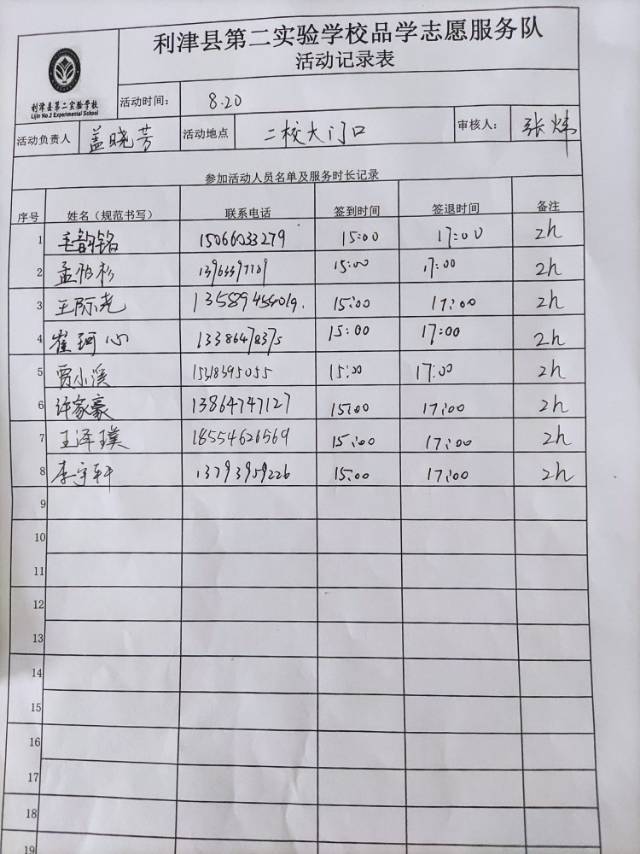 利津县第二实验学校品学志愿服务队
活动记录表
利津县第二实验学校
Lijin No.2 Experimental School
活动时间： 8.20
活动负责人 盖晓芳 活动地点 二校大门口 审核人： 张炜
参加活动人员名单及服务时长记录
序号 姓名（规范书写） 联系电话 签到时间 签退时间 备注
1 毛韵铭 15066033279 15:00 17:00 2h
2 15:00 17:00 2h
3 王际光 15:00 17:00 2h
4 崔珂心 15:00 17:00 2h
5 贾小溪 15:00 17:00 2h
6 许家豪 13864747127 15:00 17:00 2h
7 王泽璞 18554626569 15:00 17:00 2h
8 李宇轩 13793959226 15:00 17:00 2h
9
10
11
12
13
14
15
16
17
18
19